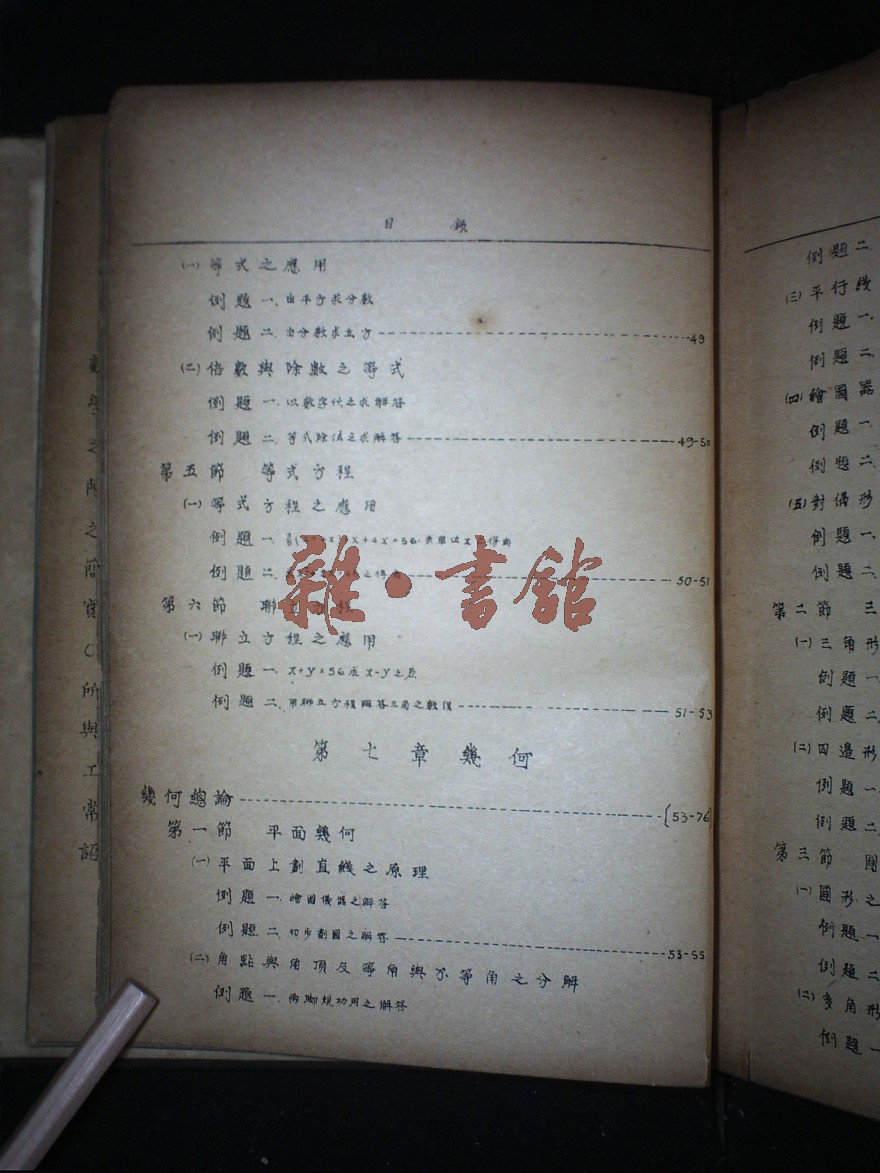 目錄
(一)等式之應用
例題一.由平方求分數
例題二.由分數求立方 49
(二)倍數與除數之等式
例題一.以數字代之求解答
例題二.等式除法之求解答 49-50
第五節 等式方程
(一)等式方程之應用
例題一. X+4X+56.求單位X之得商
例題二. 50-51
第六節 聯立方程
(一)聯立方程之應用
例題一.X+Y=56求X-Y之差
例題二.用聯立方程解答三角之數值 51-53
第七章幾何
幾何總論 (53-76)
第一節 平面幾何
(一)平面上劃直綫之原理
例題一.繪圖儀器之解答
例題二.初步劃圖之解答 53-55
(二)角點與角頂及等角與不等角之分解
例題一.兩脚規功用之解答
雜·書館
例題二.
(三)平行綫
例題一.
例題二.
(四)繪圖器
例題一.
例題二.
(五)對偶形
例題一.
例題二.
第二節 三
(一)三角形
例題一.
例題二.
(二)四邊形
例題一.
例題二.
第三節 圓
(一)圓形之
例題一.
例題二.
(二)多角形
例題一